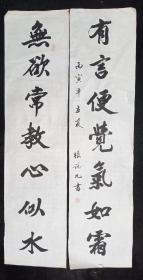 有言便覺氣如霜
無欲常教心似水
丙寅年立夏